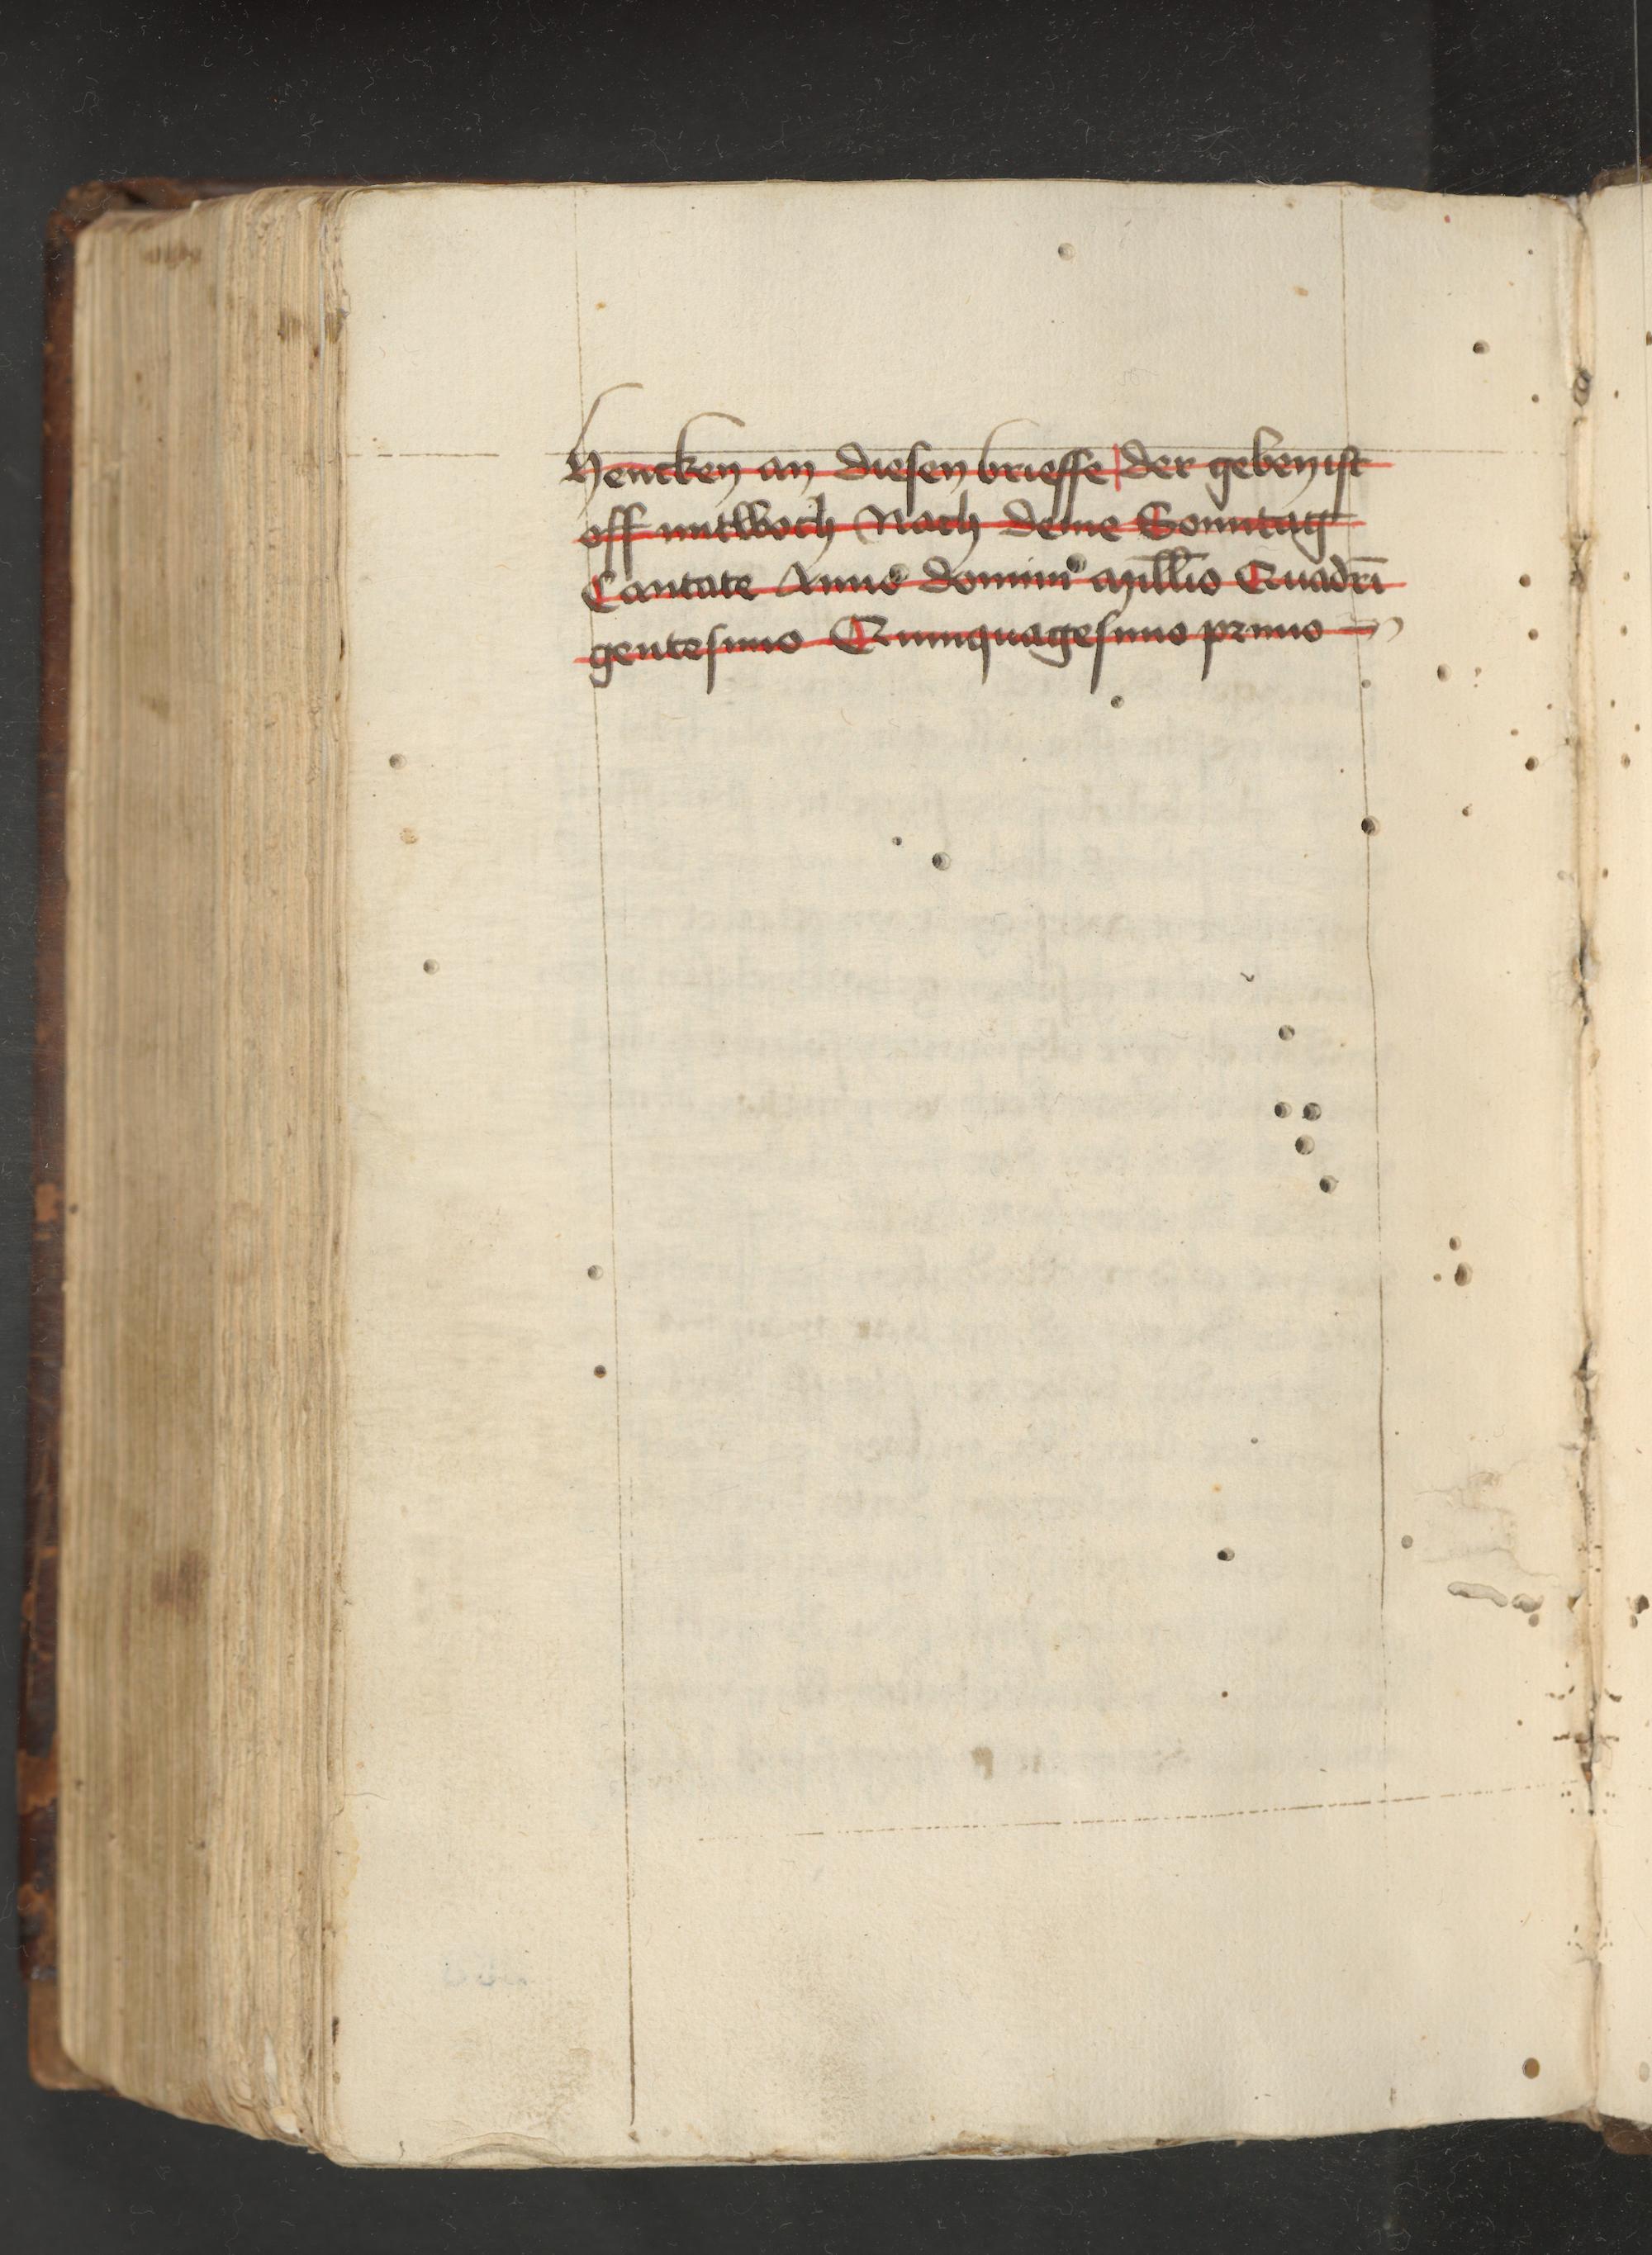 hencken an diesen brieffe der geben ist
off mitwoch Nach deme Sonntag
Cantate Anno domini millīo Quadrī
gentesimo Quinquagesimo primo